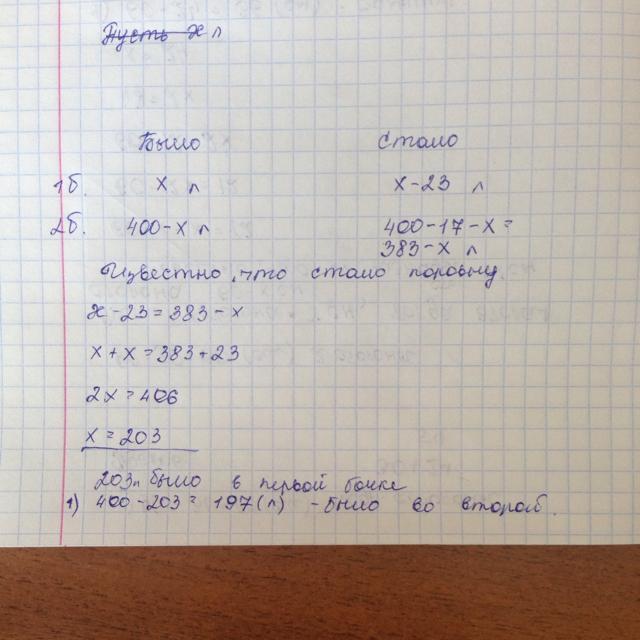 Пусть x л
Было Стало
1б. x л x-23 л
2б. 400-x л 400-17-x=
383-x л
Известно, что стало поровну.
x-23=383-x
x+x=383+23
2x=406
x=203
203л было в первой бочке
1) 400-203=197(л) - было во второй.